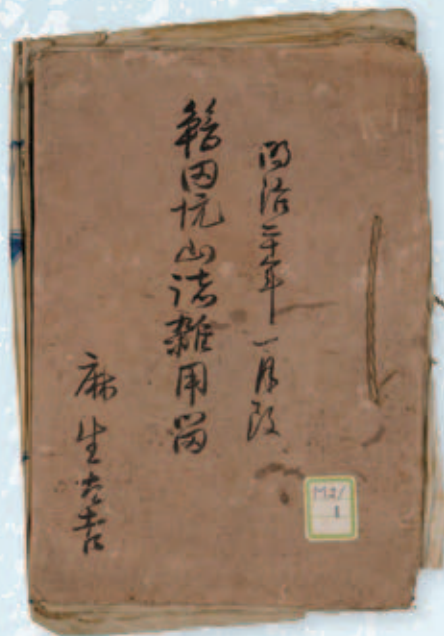 明治二十年一月改
鞍田坑山諸雑用留
麻生太吉
M21
1